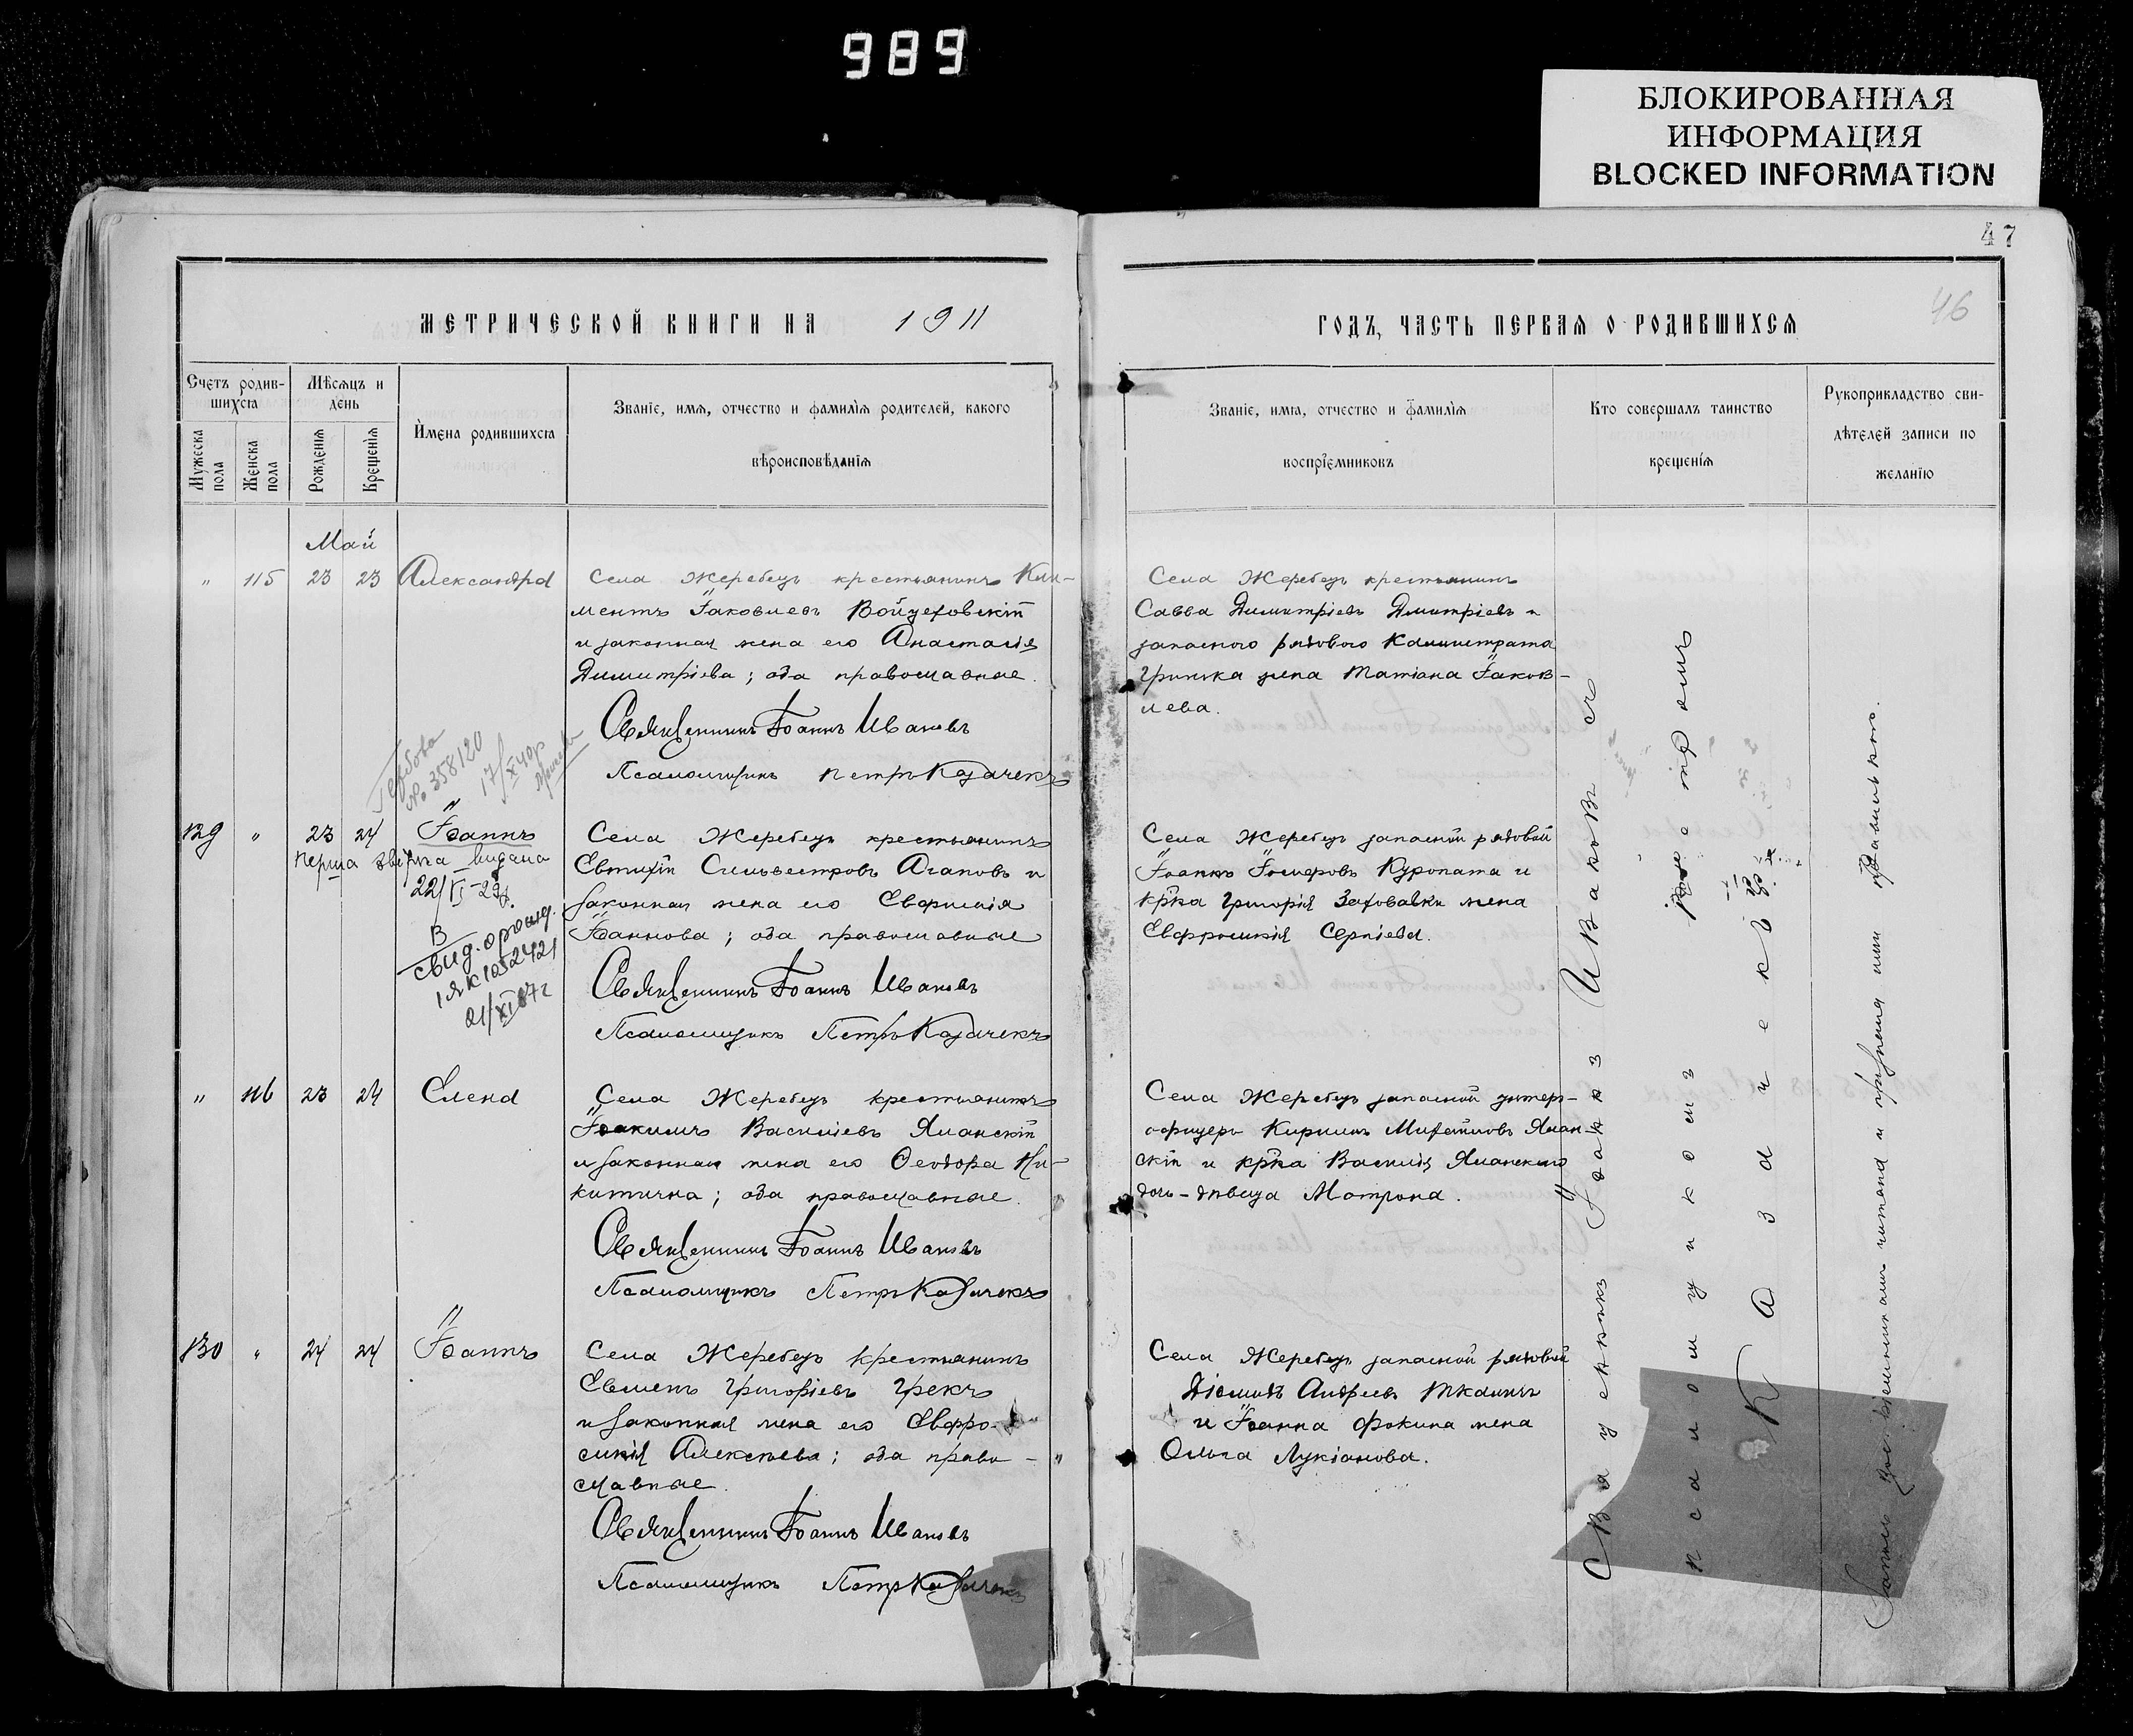 989
БЛОКИРОВАННАЯ
ИНФОРМАЦИЯ
BLOCKED INFORMATION
47
46
МЕТРИЧЕСКОЙ КНИГИ НА 1911
ГОДЪ, ЧАСТЬ ПЕРВАЯ О РОДИВШИХСЯ
Счетъ родив-
шихся
Мужеска пола
Женска пола
Мѣсяцъ и
день
Рожденія
Крещенія
Имена родившихся
Званіе, имя, отчество и фамилія родителей, какого
вѣроисповѣданія
Званіе, имя, отчество и фамилія
воспріемниковъ
Кто совершалъ таинство
крещенія
Рукоприкладство сви-
дѣтелей записи по
желанію
Май
" 115 23 23 Александра
Села Жеребецъ крестьянинъ Кли-
ментъ Іаковлевъ Войцеховскій
и законная жена его Анастасія
Димитріева; оба православные.
Священникъ Іоаннъ Ивановъ
Псаломщикъ Петръ Казачекъ
Села Жеребецъ крестьянинъ
Савва Димитріевъ Дмитріевъ и
запасного рядового Каллистрата
Гринька жена Татіана Іаков-
лева.
№ 358120
129 " 23 24 Іоаннъ
Перша видана
22/VI-29р.
В
свид. о рожд.
1 ЯК 1052421
21/XI 87г
Села Жеребецъ крестьянинъ
Евтихій Сильвестровъ Агаповъ и
законная жена его Евфимія
Іоаннова; оба православные
Священникъ Іоаннъ Ивановъ
Псаломщикъ Петръ Казачекъ
Села Жеребецъ запасной рядовой
Іоаннъ Куропата и
кр̃ка Григорія жена
Евфросинія Сергіева.
" 116 23 24 Елена
Села Жеребецъ крестьянинъ
Іоакимъ Василіевъ Яланскій
и законная жена его Ѳеодора Ни-
китична; оба православные.
Священникъ Іоаннъ Ивановъ
Псаломщикъ Петръ Казачекъ
Села Жеребецъ запасной унтеръ-
офицеръ Кириллъ Михаиловъ Ялан-
скій и кр̃ка Василія Яланского
дочь-дѣвица Матрона.
130 " 24 24 Іоаннъ
Села Жеребецъ крестьянинъ
Евменъ Григоріевъ Грекъ
и законная жена его Евфро-
синія Алексѣева; оба право-
славные.
Священникъ Іоаннъ Ивановъ
Псаломщикъ Петръ Казачекъ
Села Жеребецъ запасной рядовой
Діомидъ Андреевъ Ткаличъ
и Іоанна Фокина жена
Ольга Лукіанова.
Священникъ Іоаннъ Ивановъ съ
псаломщикомъ Петромъ
Казачекъ